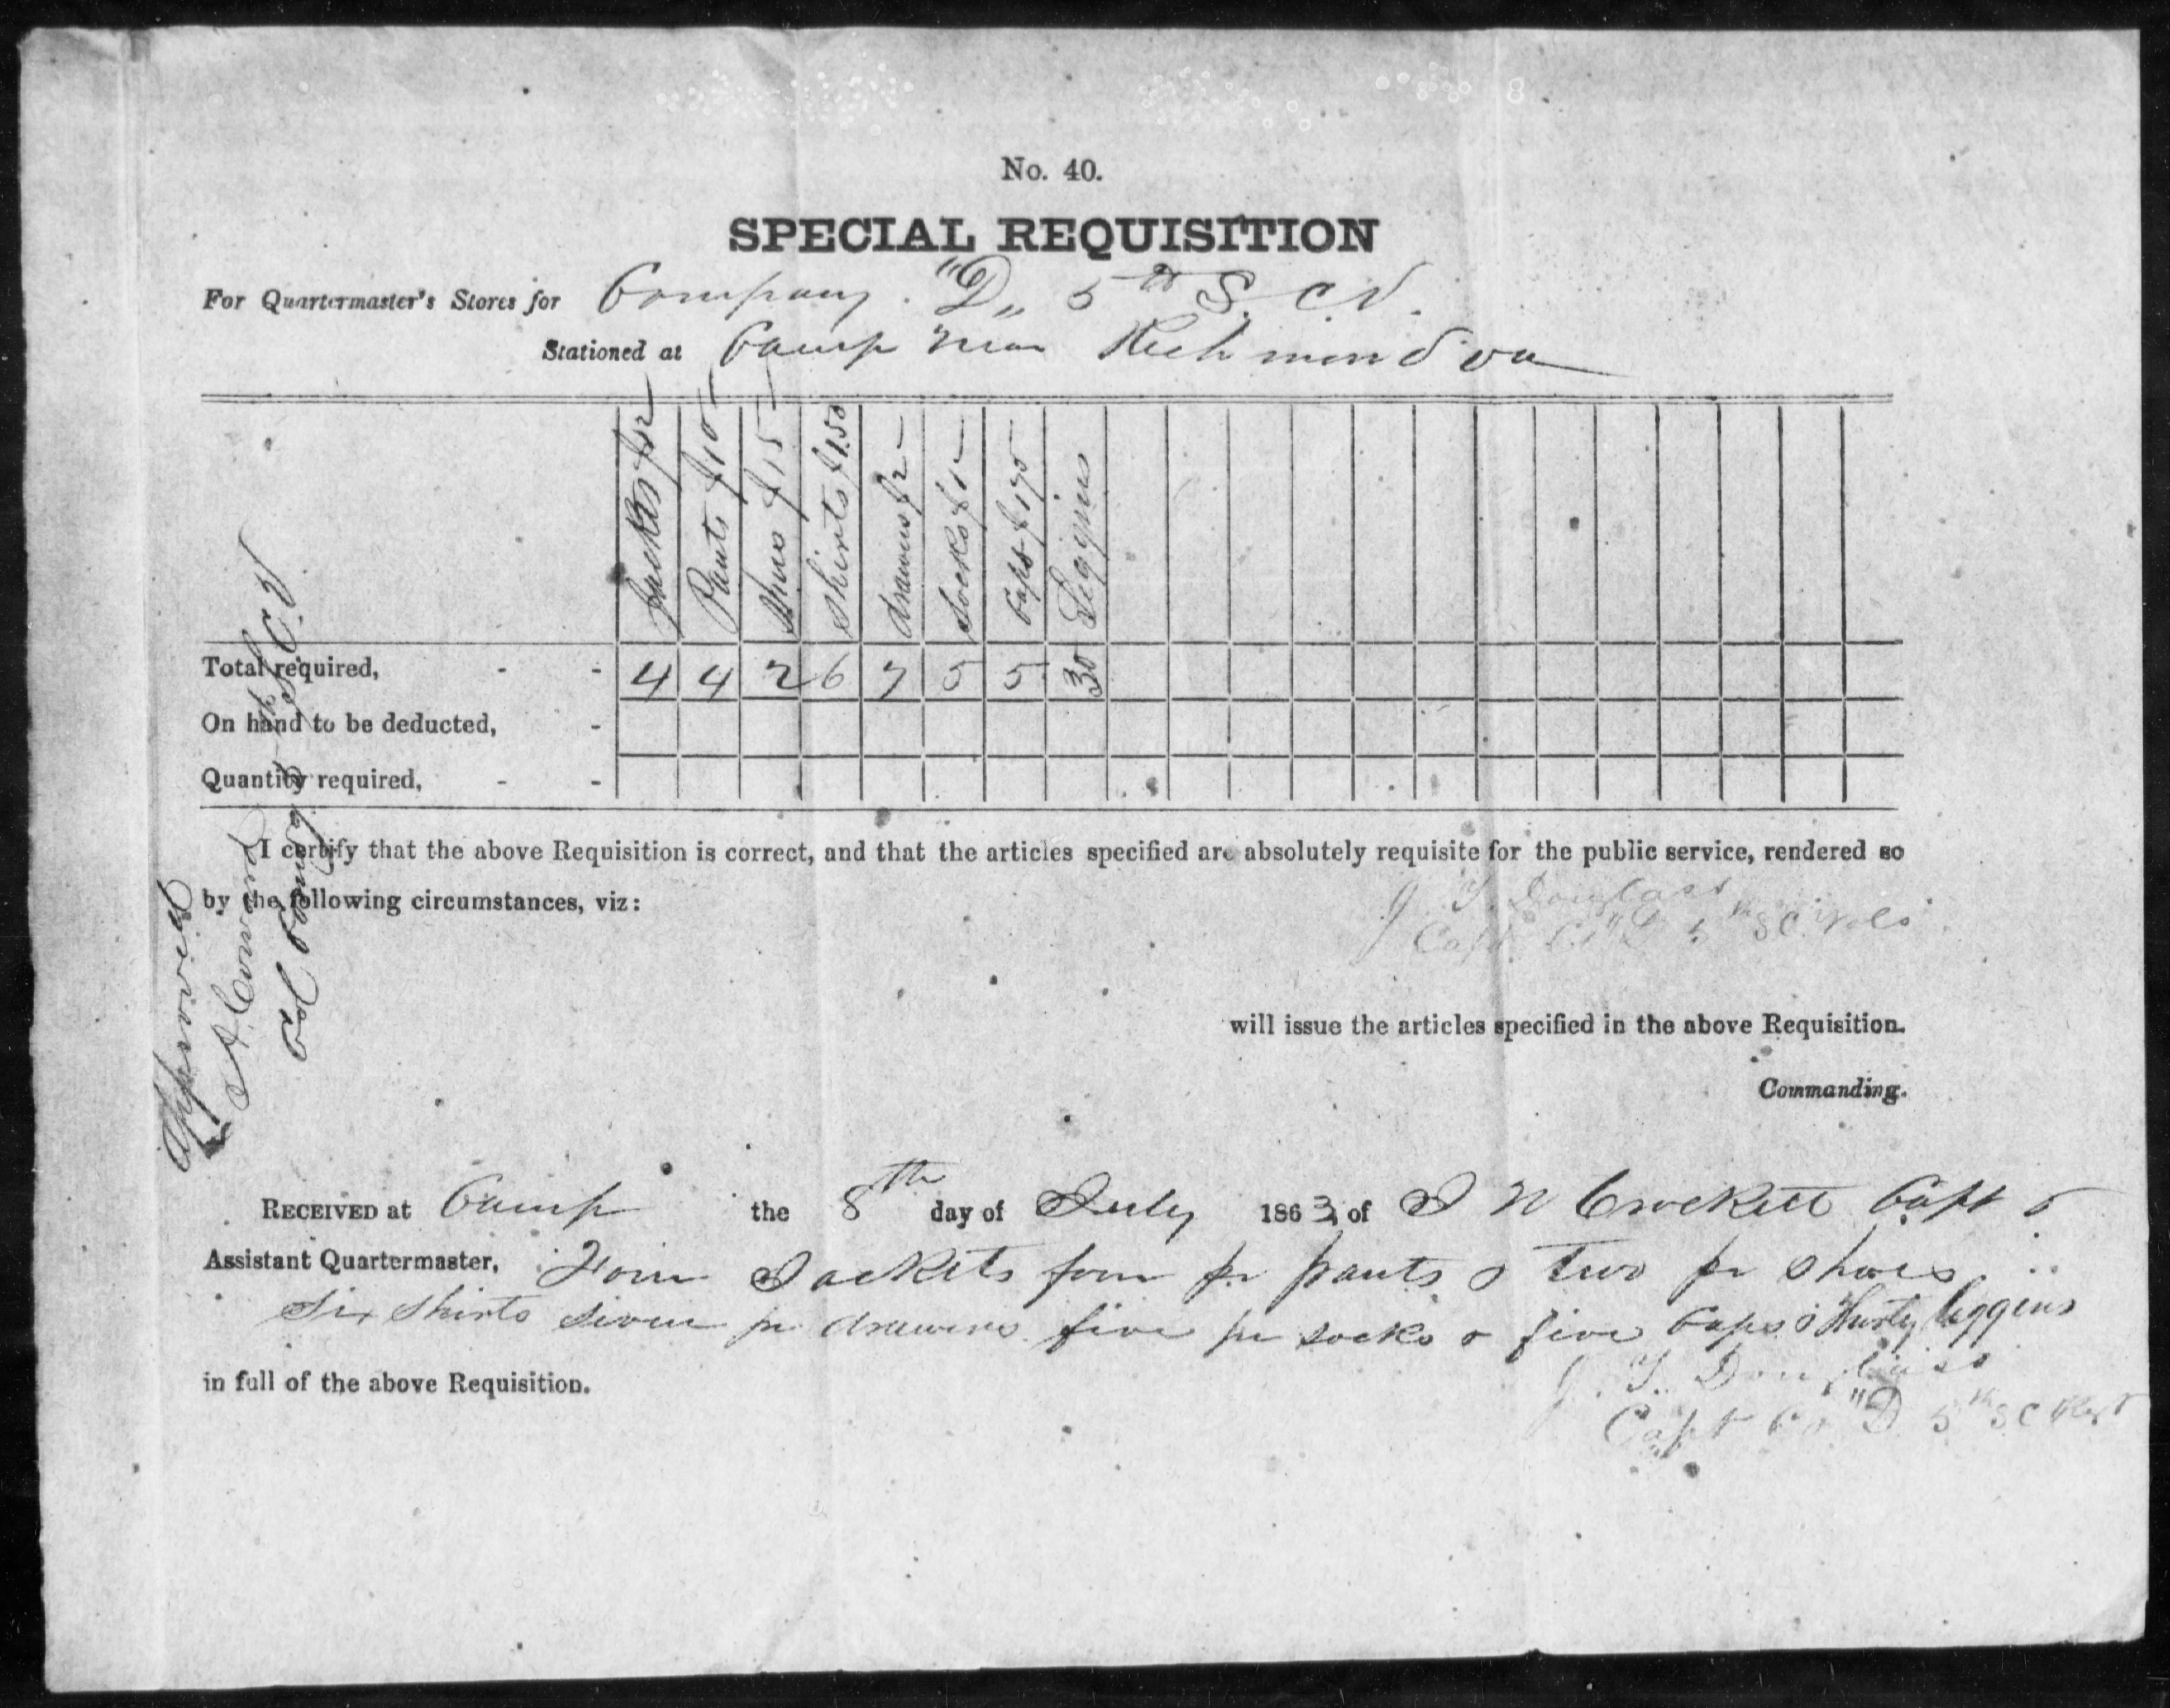 No. 40.
SPECIAL REQUISITION
For Quartermaster's Stores for Company "D" 5th S. C. V.
Stationed at Camp near Richmond va
Jackets $12
Pants $10
Shoes $15
Shirts $1.50
drawers $2
Socks $1
Caps $1 75
Leggins
Total required, - - 4 4 2 6 7 5 5 30
On hand to be deducted, -
Quantity required, - -
I certify that the above Requisition is correct, and that the articles specified are absolutely requisite for the public service, rendered so
by the following circumstances, viz:
J. T. Douglass
Capt Co "D" 5th S C Vols
will issue the articles specified in the above Requisition.
Commanding.
Approved
A. Coward
Col Comdg 5th S. C. V
RECEIVED at Camp the 8th day of July 1863, of J N Crockett Capt &
Assistant Quartermaster, Four Jackets four pr pants & Two pr shoes
Six Shirts seven pr drawers five pr socks & five Caps & thirty leggins
in full of the above Requisition.
J. T. Douglass
Capt Co "D" 5th S C Regt